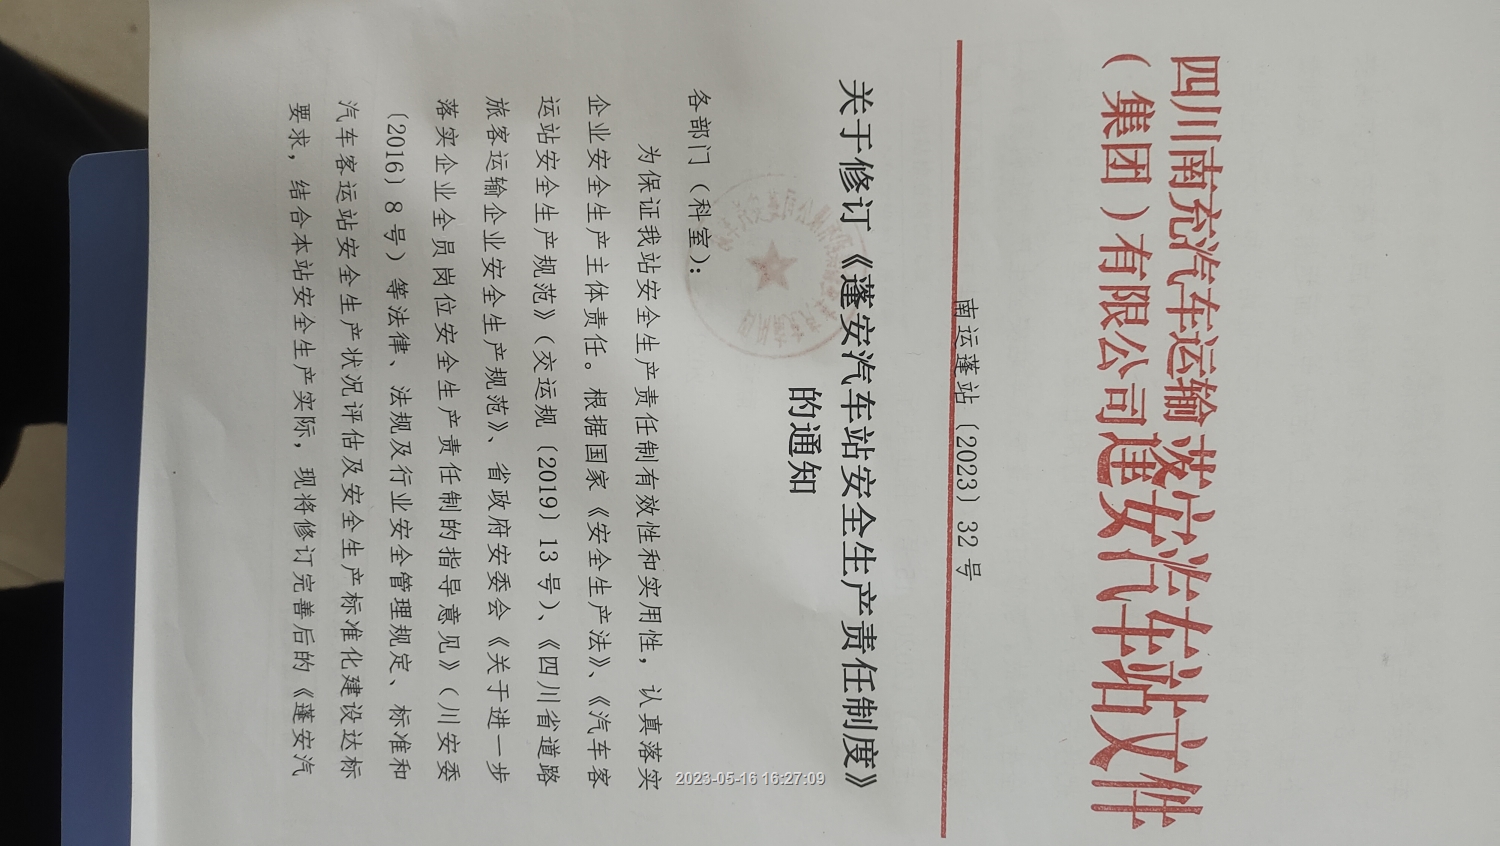 四川南充汽车运输
（集团）有限公司
蓬安汽车站文件
南运蓬站〔2023〕32 号
关于修订《蓬安汽车站安全生产责任制度》
的通知
各部门（科室）：
为保证我站安全生产责任制有效性和实用性，认真落实
企业安全生产主体责任。根据国家《安全生产法》、《汽车客
运站安全生产规范》（交运规〔2019〕13 号）、《四川省道路
旅客运输企业安全生产规范》、省政府安委会《关于进一步
落实企业全员岗位安全生产责任制的指导意见》（川安委
〔2016〕8 号）等法律、法规及行业安全管理规定、标准和
汽车客运站安全生产状况评估及安全生产标准化建设达标
要求，结合本站安全生产实际，现将修订完善后的《蓬安汽
2023-05-16 16:27:09